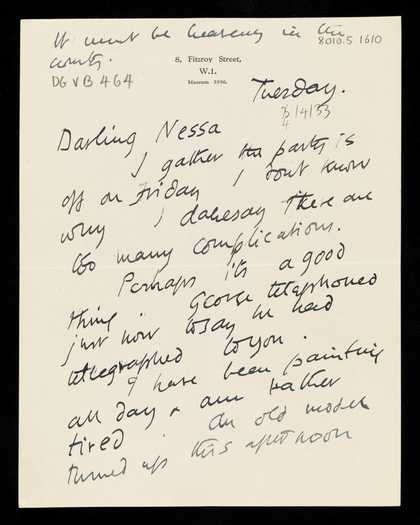 It must be heavenly in the
8010.5 1610
country.
DG VB 464
8, Fitzroy Street,
W.1.
Museum 1936.
Tuesday.
/4/33
4
Darling Nessa
I gather the party is
off on Friday I dont know
why I daresay there are
too many complications.
Perhaps its a good
thing. George telephoned
just now to say he had
telegraphed to you.
I have been painting
all day & am rather
tired. An old model
turned up this afternoon